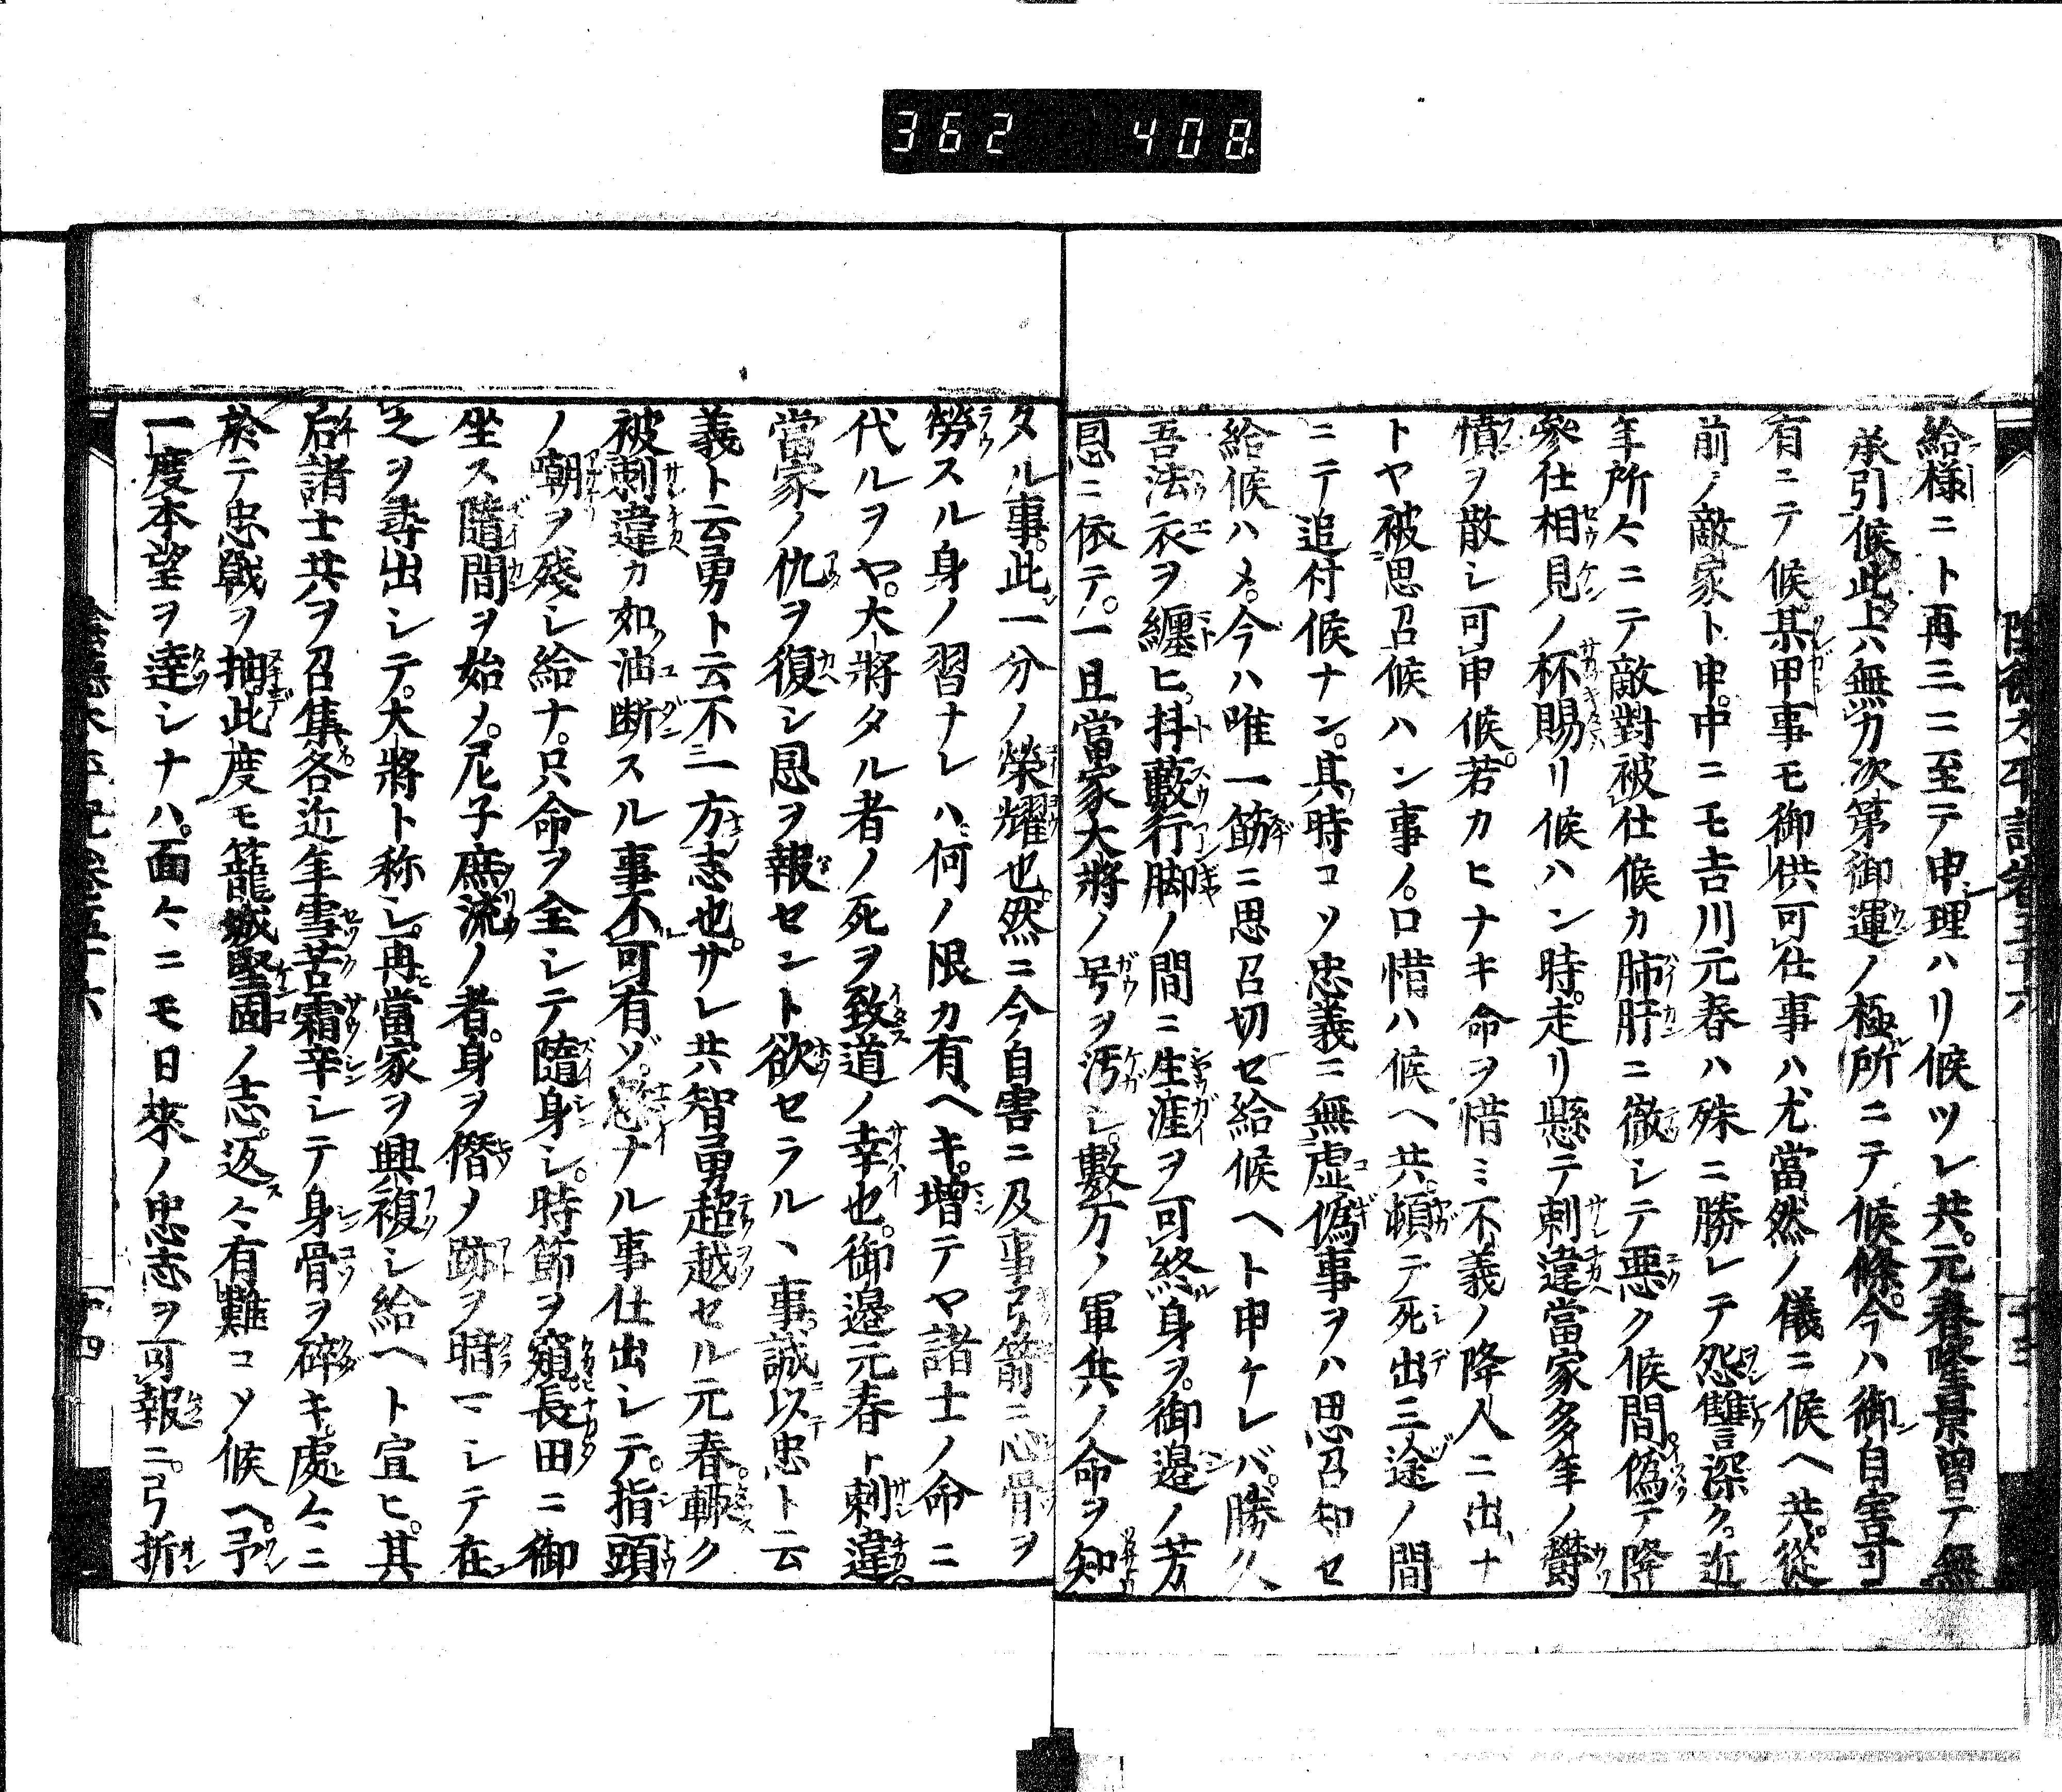 362 408
給様ニト再三ニ至テ申理ハリ候ツレ共。元春隆景曾テ無
承引候。此上ハ無力次第御運ノ極所ニテ候條。今ハ御自害可
有ニテ候。某甲事モ御供可仕事ハ尤當然ノ儀ニ候ヘ共。從
前ノ敵家ト申。中ニモ吉川元春ハ殊ニ勝レテ怨讐深ク。近
年所々ニテ敵對被仕候カ肺肝ニ徹シテ悪ク候間。偽テ降
參仕相見ノ杯賜リ候ハン時。走リ懸テ刺違當家多年ノ欝
憤ヲ散シ可申候。若カヒナキ命ヲ惜ミ不義ノ降人ニ出ナ
トヤ被思召候ハン事ノ。口惜ハ候ヘ共。頓テ死出三途ノ間
ニテ追付候ナン。其時コソ忠義ニ無虚偽事ヲハ思召知セ
給候ハメ。今ハ唯一筋ニ思召切セ給候ヘト申ケレバ。勝久
吾法衣ヲ纏ヒ。抖藪行脚ノ間ニ生涯ヲ可終身ヲ。御邉ノ芳
恩ニ依テ。一旦當家大將ノ号ヲ汚シ。數万ノ軍兵ノ命ヲ知
タル事。此一分ノ榮耀也。然ニ今自害ニ及事弓箭ニ心骨ヲ
勞スル身ノ習ナレハ何ノ恨カ有ヘキ。増テヤ諸士ノ命ニ
代ルヲヤ。大將タル者ノ死ヲ致道ノ幸也。御邉元春ト刺違。
當家ノ仇ヲ復シ恩ヲ報セント欲セラルヽ事。誠以忠ト云
義ト云勇ト云不一方志也。サレ共智勇超越セル元春。輙ク
被刺違カ如油断スル事不可有ゾ。ナル事仕出シテ。指頭
ノ嘲ヲ殘シ給ナ。只命ヲ全シテ隨身シ。時節ヲ窺。長田ニ御
坐ス隨間ヲ始メ。尼子庶流ノ者。身ヲ僭メ跡ヲ暗マシテ在
之ヲ尋出シテ。大將ト称シ。再當家ヲ興複シ給ヘト宣ヒ。其
后諸士共ヲ召集。各近年雪苦霜辛シテ身骨ヲ碎キ。處々ニ
於テ忠戰ヲ抽。此度モ籠城堅固ノ志。返々有難コソ候ヘ。予
一度本望ヲ達シナハ。面々ニモ日來ノ忠志ヲ可報ニ。弓折